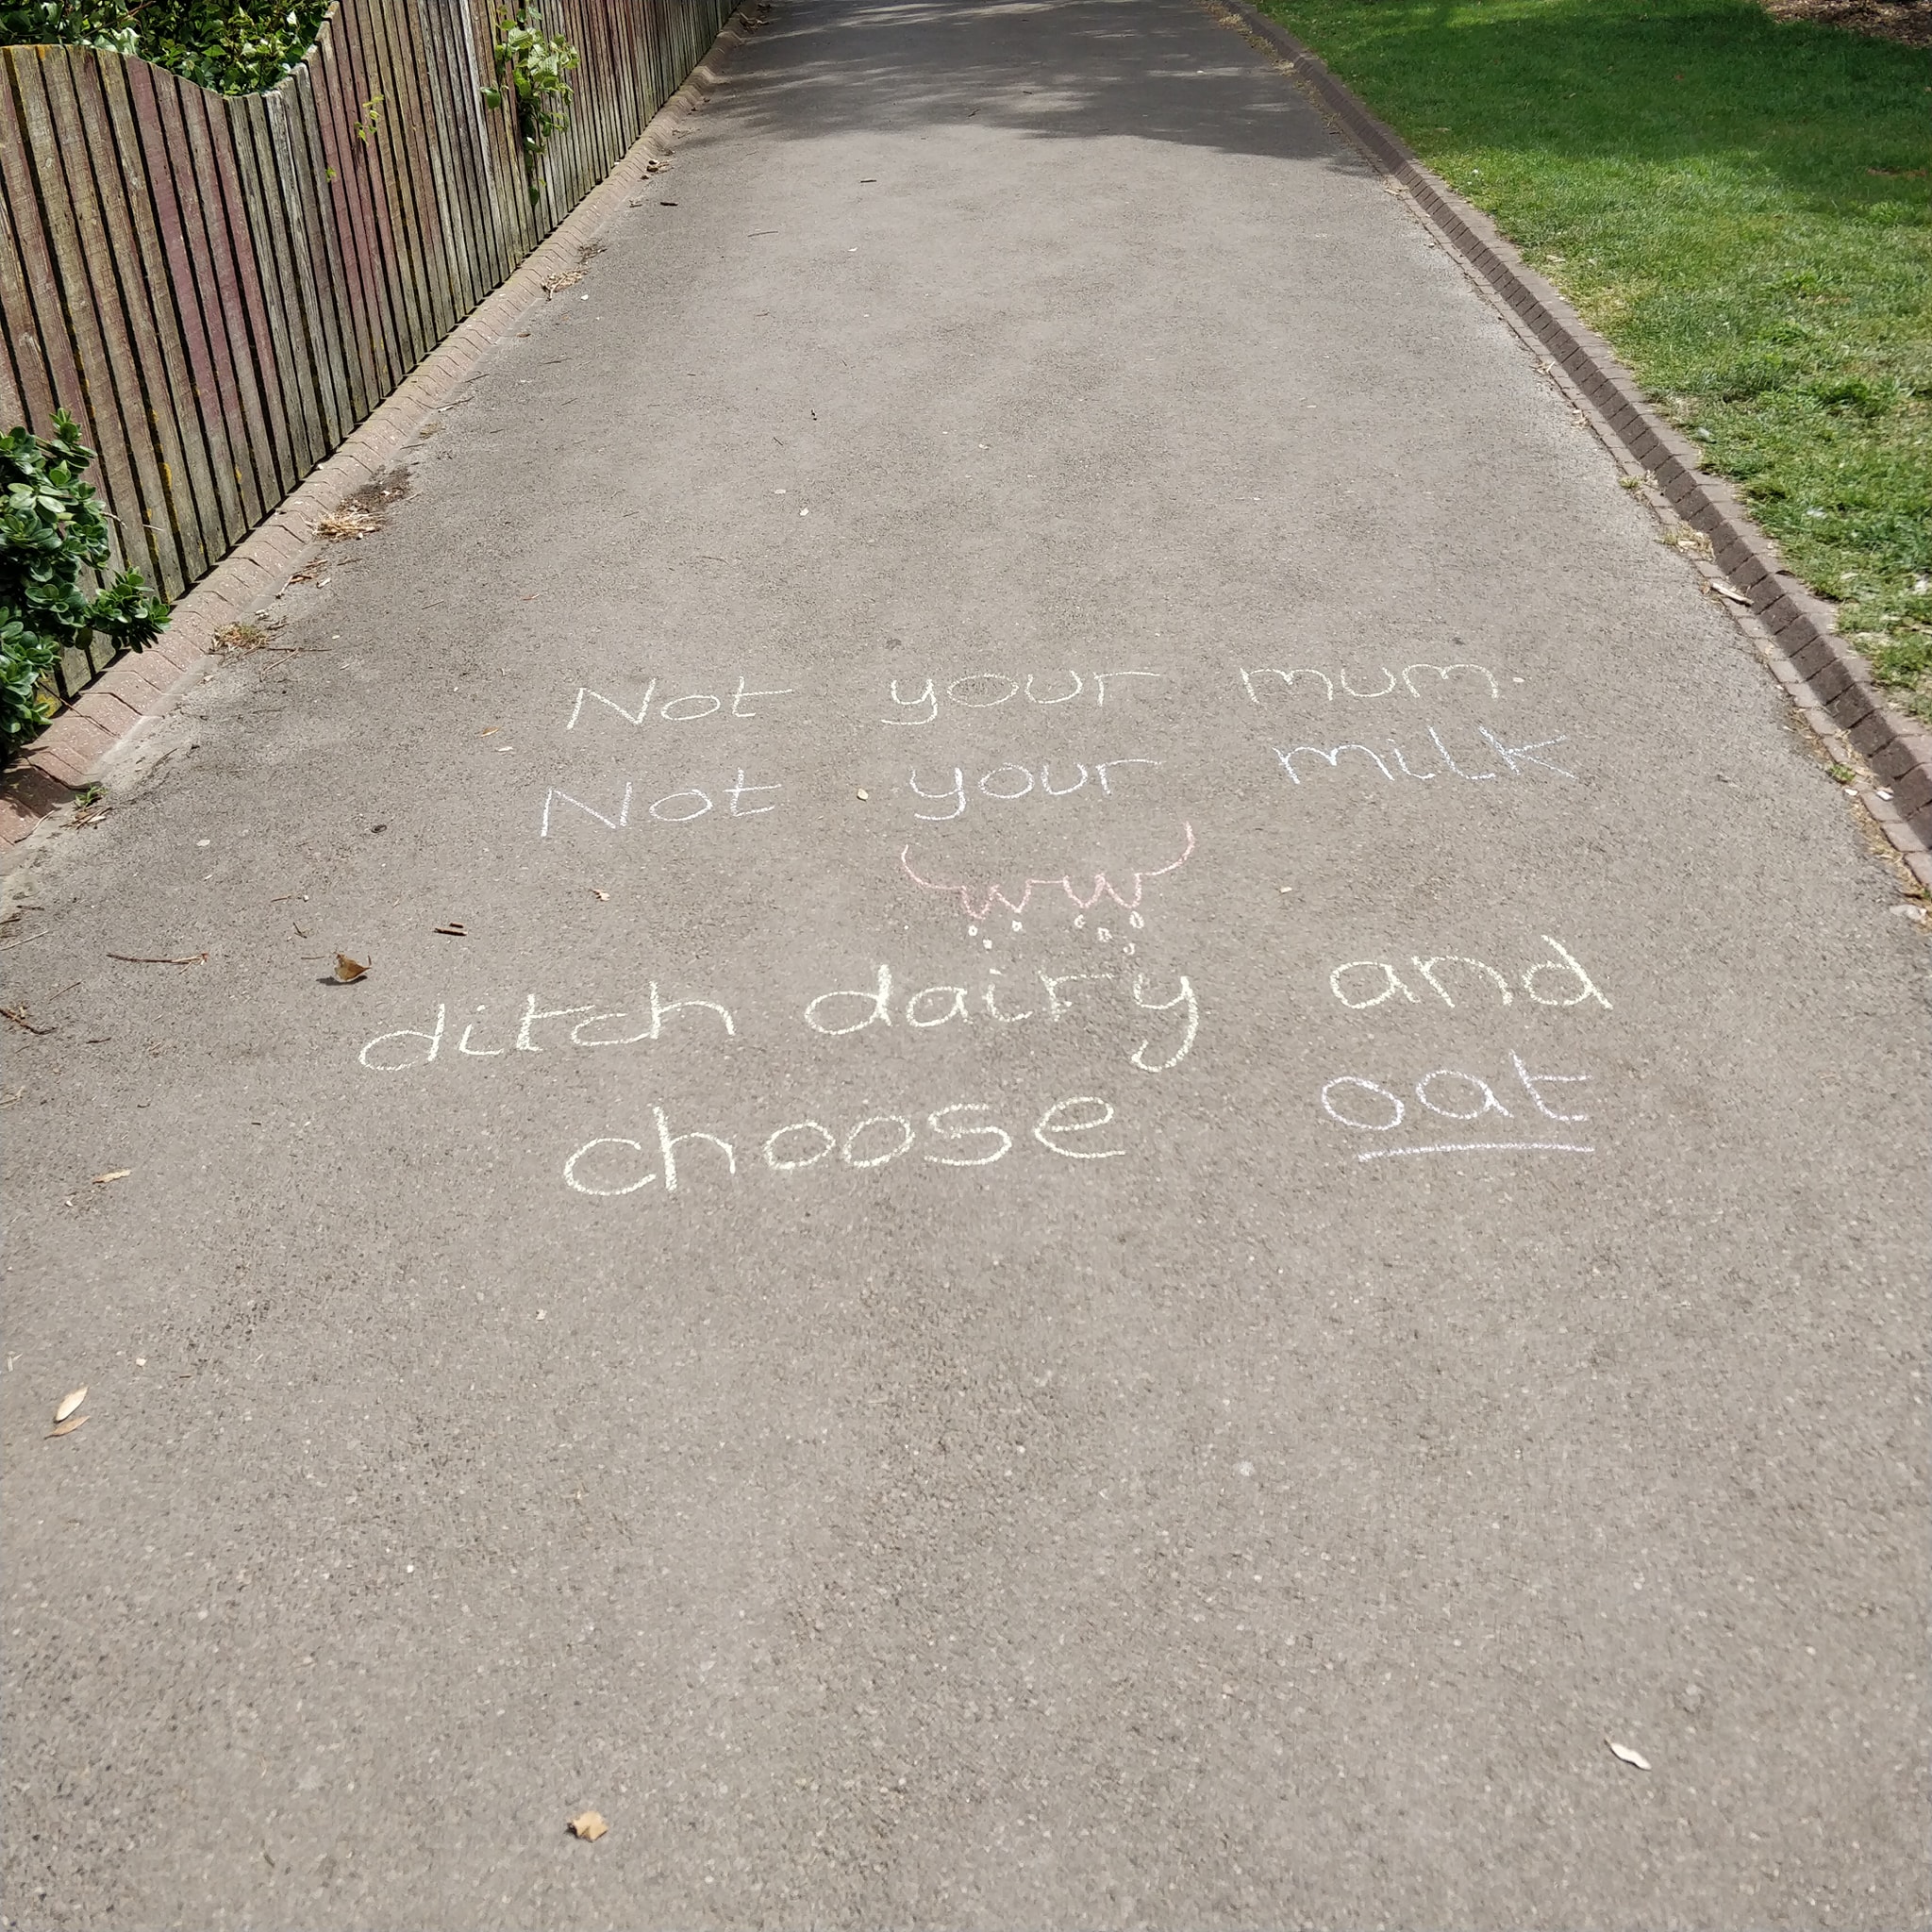 Not your mum
Not your milk
ditch dairy and
choose oat